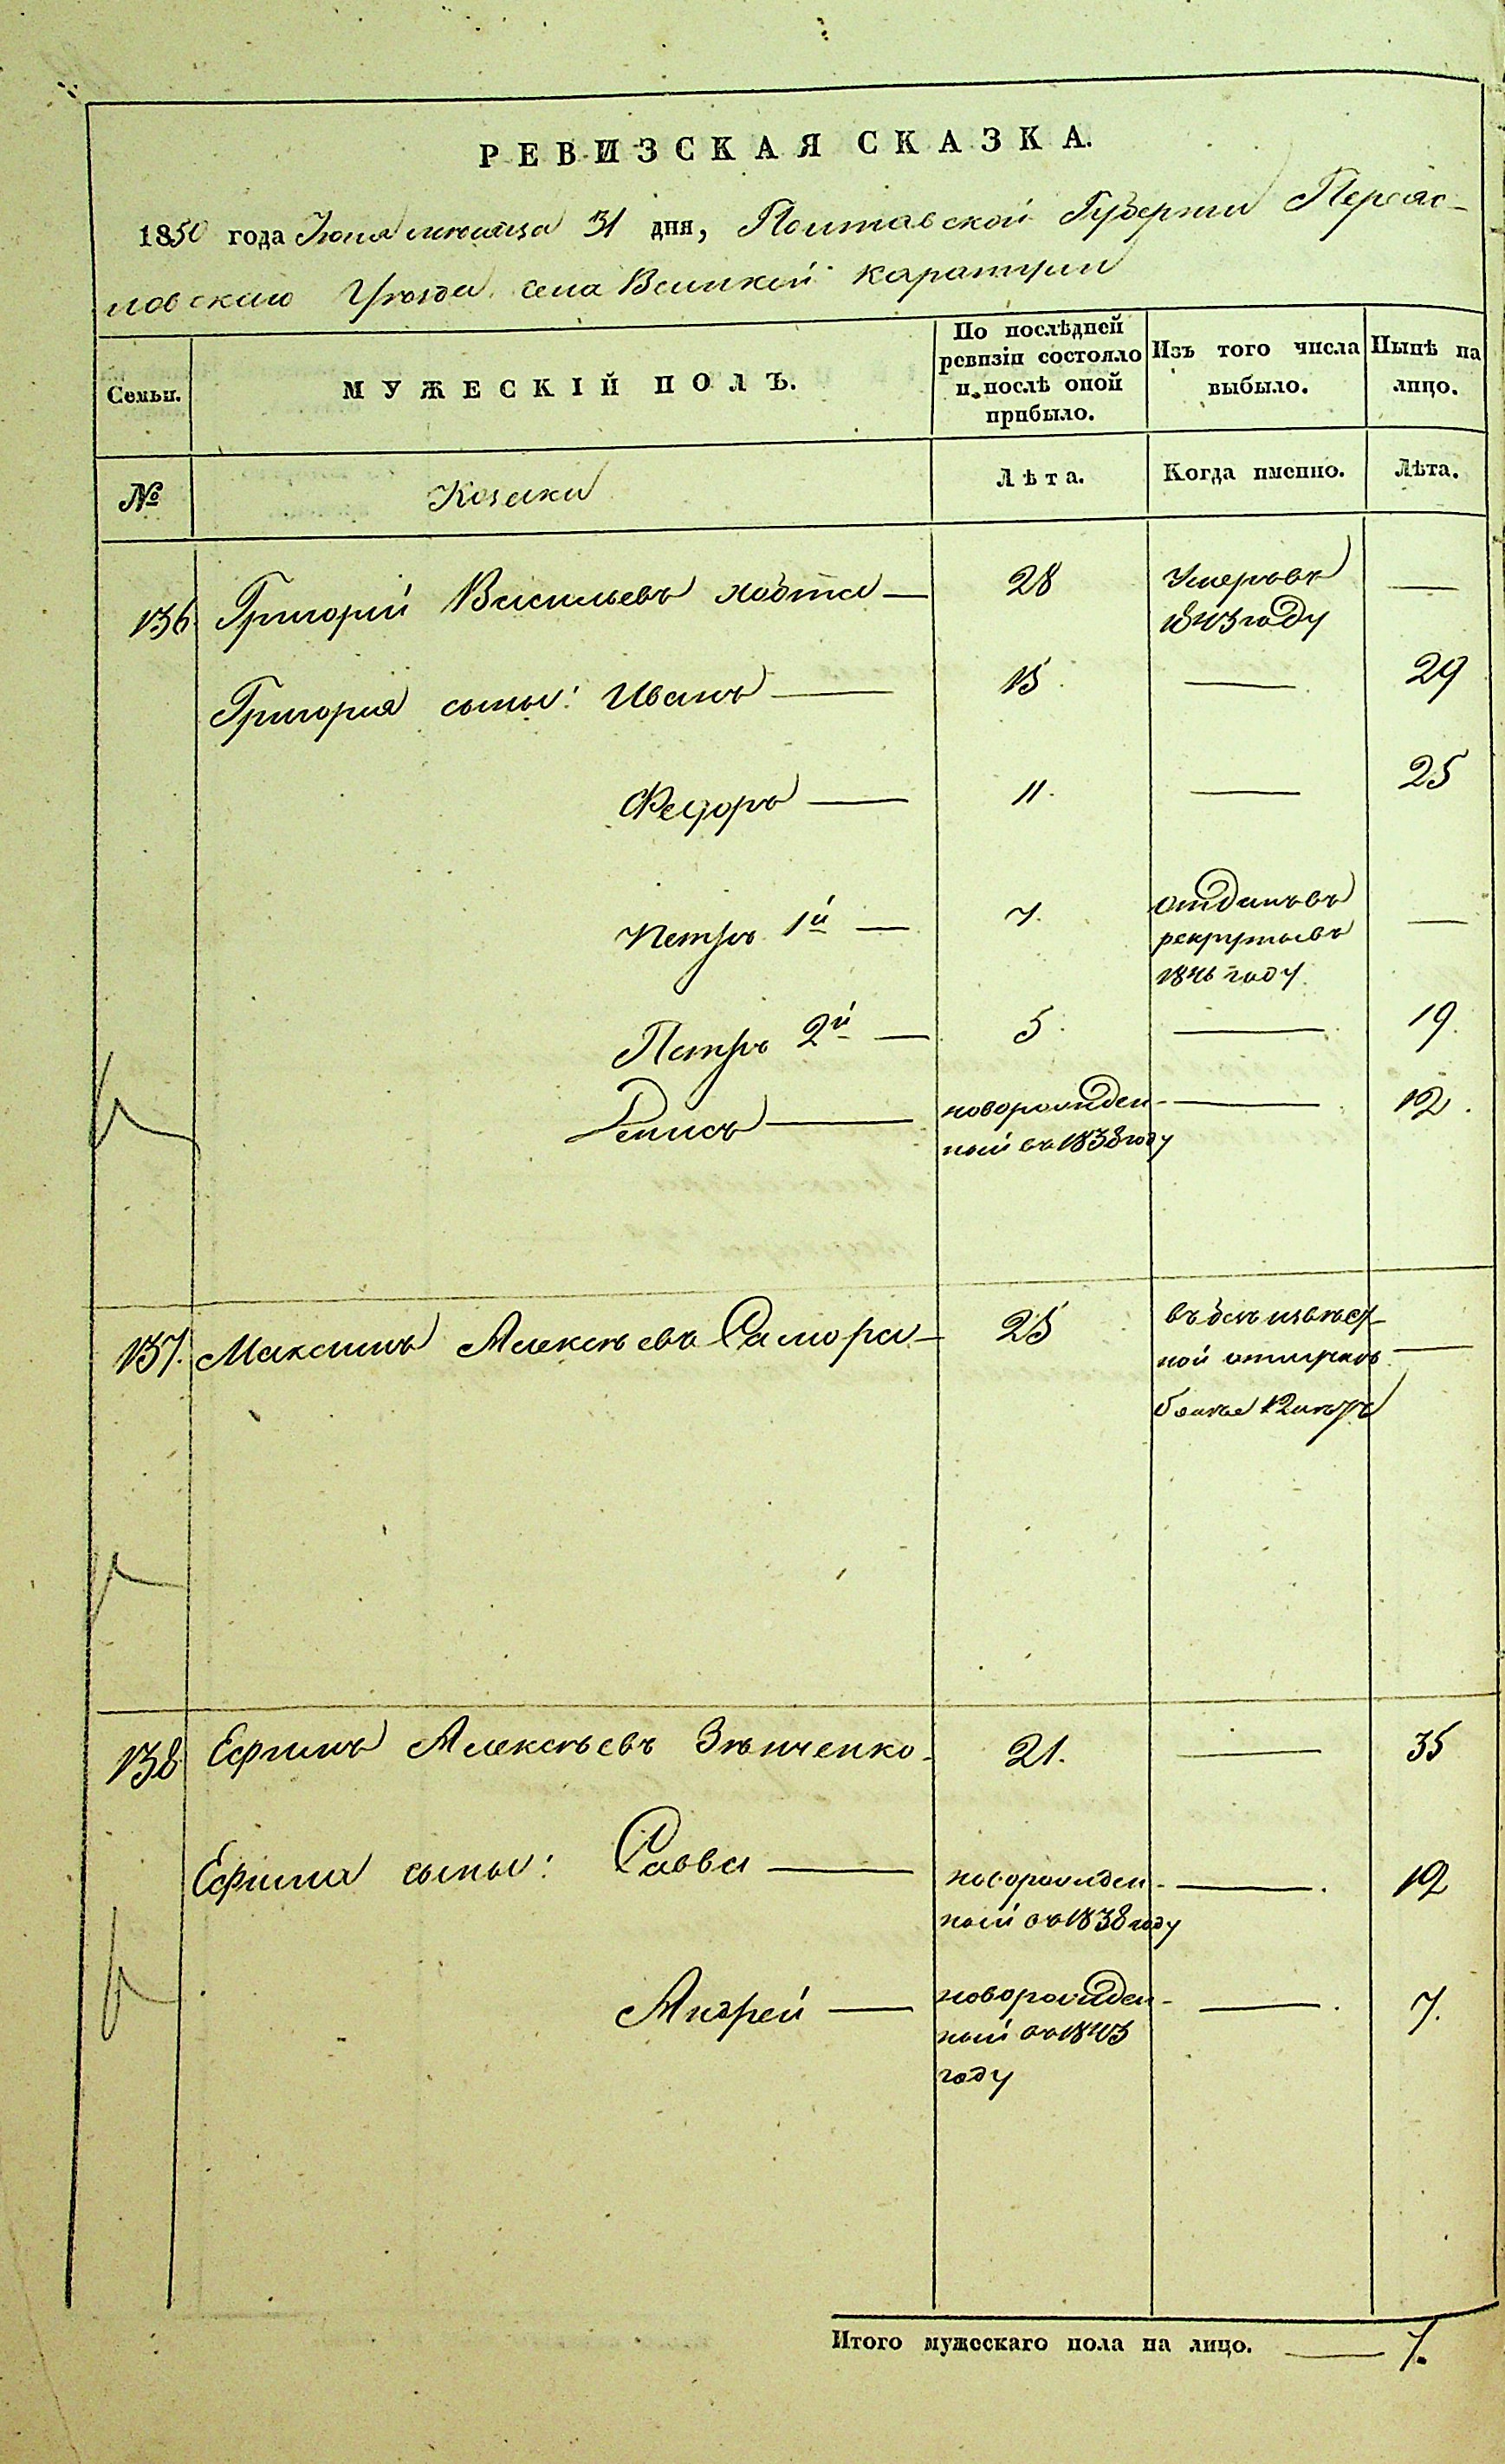 РЕВИЗСКАЯ СКАЗКА.
1850 года Июля месяца 31 дня, Полтавской Губернии Переяс-
ловскаго Уезда села Великой Каратули
Семьи.
МУЖЕСКІЙ ПОЛЪ.
По послѣдней ревизіи состояло и послѣ оной прибыло.
Изъ того числа выбыло.
Нынѣ на лицо.
№ Козаки Лѣта. Когда именно. Лѣта.
136 Григорий Васильевъ Хобта — 28 Умеръ въ —
1843 году
Григория сыны: Иванъ — 15 — 29
Федоръ — 11. — 25
Петръ 1й — 7. отданъ въ —
рекруты въ
1846 году
Петръ 2й — 5 — 19.
Денисъ — новорожден- — 12.
ный въ 1838 году
137. Максимъ Алексѣевъ — 25 въ —
ной отлучкѣ
болѣе 12 лѣтъ
138 Ефимъ Алексѣевъ Зѣнченко 21. — 35
Ефима сыны: Савва — новорожден- — 12
ный въ 1838 году
Андрей — новорожден- — 7.
ный въ 1843
году
Итого мужескаго пола на лицо. — 7.